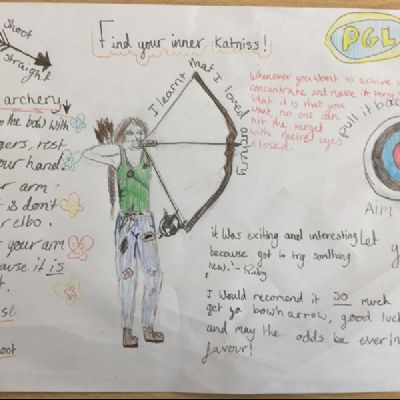 Shoot
Straight
Find your inner Katniss!
PGL
archery
the bow with
rest
your hand
arm
& don't
elbo.
your arm
because it is
I learnt that I loved archery
Whenever you want to achive
concentrate and make it very
what it is that you
want, no one can
hit the target
with theire eyes
closed.
Pull it back
Aim
it was exiting and interesting
because got to try somthing
new.' - Ruby
Let
I would recomend it so much
get ya bow'n arrow, good luck
and may the odds be ever in
favour!